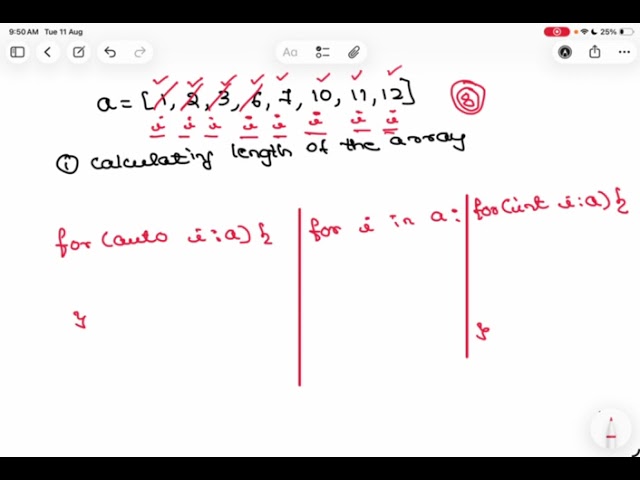 9:50 AM Tue 11 Aug
25%
Aa
a = [1, 2, 3, 6, 7, 10, 11, 12] 8
i i i i i i i i
① calculating length of the array
for (auto i : a) {
}
for i in a :
for (int i : a) {
}